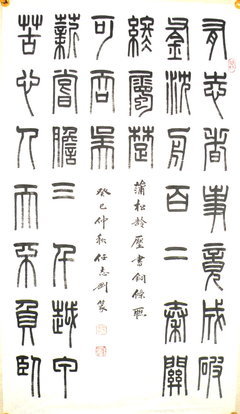 有志者事竟成破
釜沈舟百二秦關
終屬楚
蒲松齡壓書銅條聯
苦心人天不負臥
薪嘗膽三千越甲
可吞吳
癸巳仲秋任志剛篆